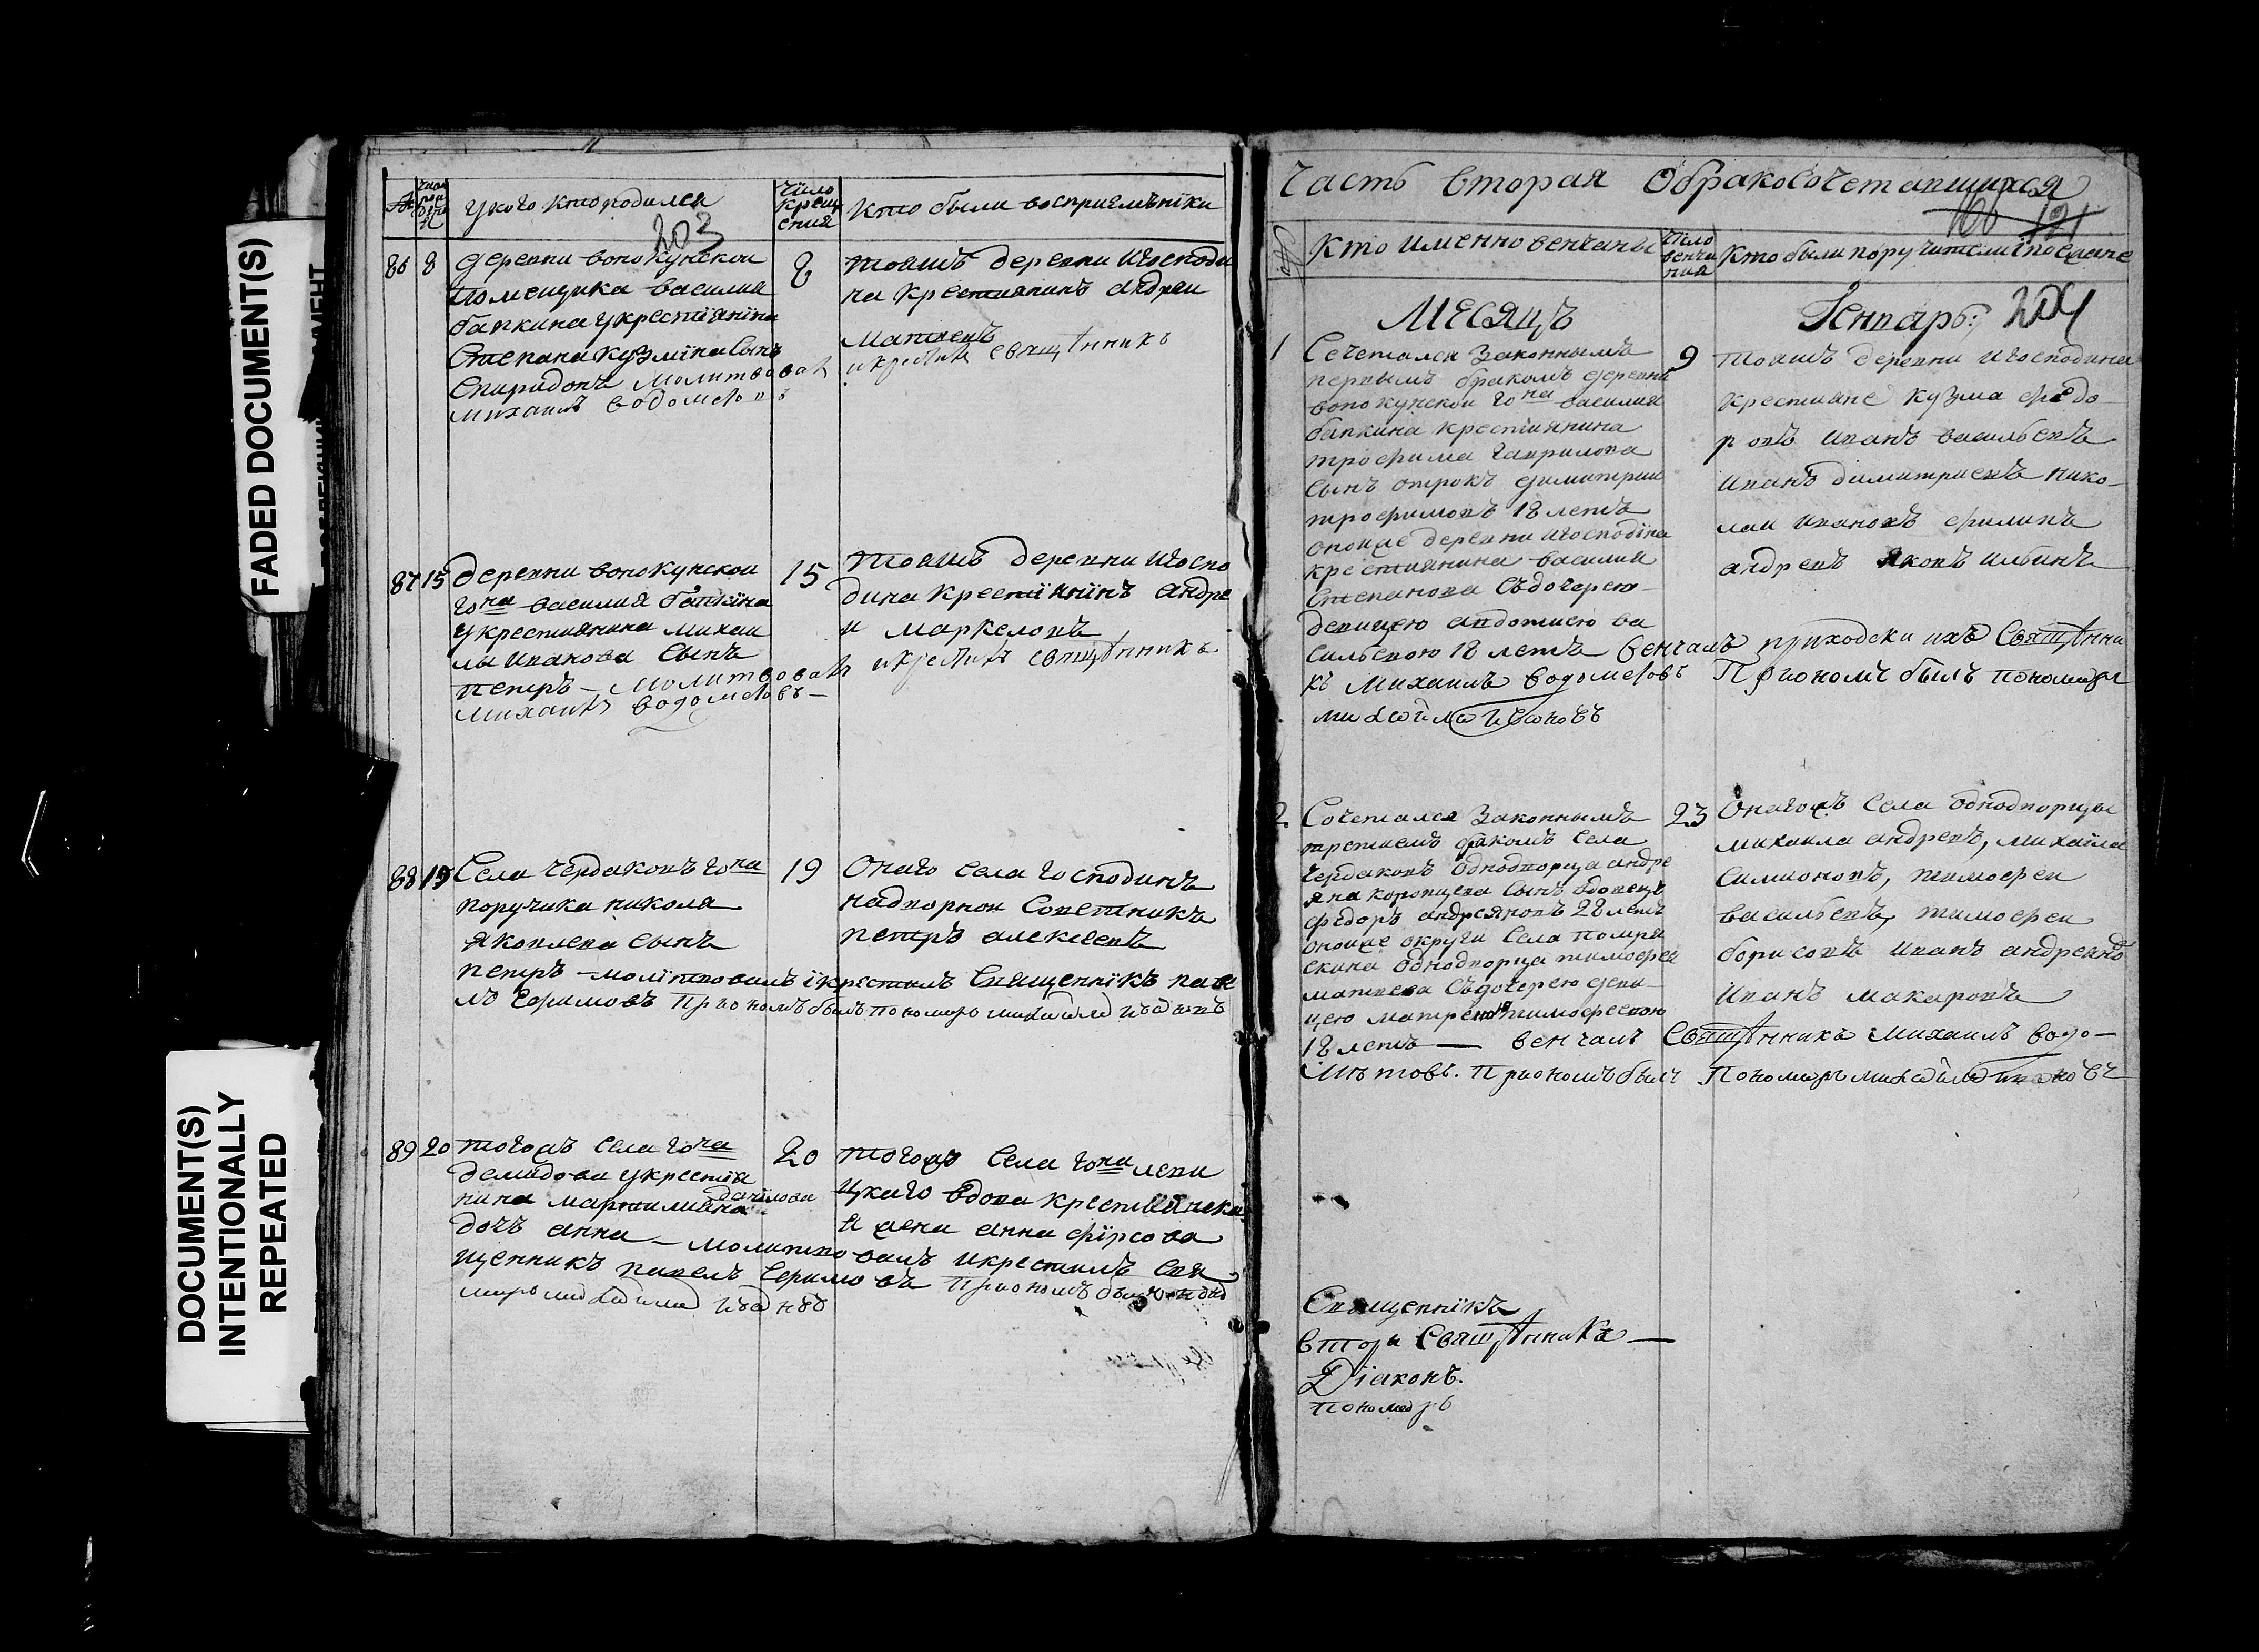 FADED DOCUMENT(S)
DOCUMENT(S)
INTENTIONALLY
REPEATED
№
Число рождения
У кого кто родился
Число крещения
Кто были восприемъники
203
86 8
деревни вонокунской
помещика василия
бапкина укрестьянина
Степана кузмина Сынъ
Спиридонъ молитвовалъ
михаилъ водометовъ
8
тояжъ деревни игосподи
на крестиянинъ андреи
Матвевъ
икрестилъ священникъ
87 15
деревни вонокунской
гона василия бапкина
укрестиянина михаи
лы иванова Сынъ
петръ – молитвовалъ
михаилъ водометовъ –
15
тояжъ деревни игоспо
дина крестиянинъ андре
и маркеловъ
икрестилъ священникъ
88 19
Села чердаковъ гона
поручика николя
яковлева Сынъ
петръ – молитвовалъ икрестилъ Священникъ паве
лъ ефимовъ приономъ былъ пономарь михаила ивановъ
19
Онаго села господинъ
надворнои Советникъ
петръ алексеевъ
89 20
тогожъ села гона
демидова укрестия
нина мартимияна данилова
дочь анна – молитвовалъ икрестилъ свя
щенникъ павелъ ефимовъ приономъ былъ поно
марь михаила ивановъ
20
тогожъ села гона леви
цкаго вдова крестиянска
я жена анна фирсова
Часть вторая Обракосочетавшихся
106 121
№
Кто именно венчаны
Число венчания
Кто были поручители ипоезжане
Месяцъ
Генварь: 204
1
Сочетался Законнымъ
первымъ бракомъ деревни
вонокунской гона василия
бапкина крестиянина
трофима гаврилова
сынъ отрокъ димитрии
трофимовъ 18 летъ
оноиже деревни игосподина
крестиянина василия
Степанова Съдочерею
девицею авдотиею ва
сильевою 18 летъ венчалъ приходски ихъ Священни
къ Михаилъ водометовъ Приономъ былъ пономарь
михаила ивановъ
9
тояжъ деревни игосподина
крестияне кузма федо
ровъ иванъ васильевъ
иванъ димитриевъ нико
лаи ивановъ филипъ
андревъ яковъ ильинъ
2
Сочетался Законнымъ
третиемъ бракомъ села
чердаковъ однодворца андре
яна коропцева сынъ вдовецъ
федоръ андреяновъ 28 летъ
оноиже округи села помря
скина однодворца тимофея
матвева Съдочерею деви
цею матреною тимофеевою
18 летъ — венчалъ Священникъ Михаилъ водо–
мѣтовъ. Приономъ былъ Пономарь михаила ивановъ
23
Онагожъ Села однодворцы
михаила андревъ, михаила
Симионовъ, тимофеи
васильевъ, тимофеи
борисовъ иванъ андреяно
иванъ макаровъ
Священникъ
вторы Священникъ —
Дiаконъ.
пономарь